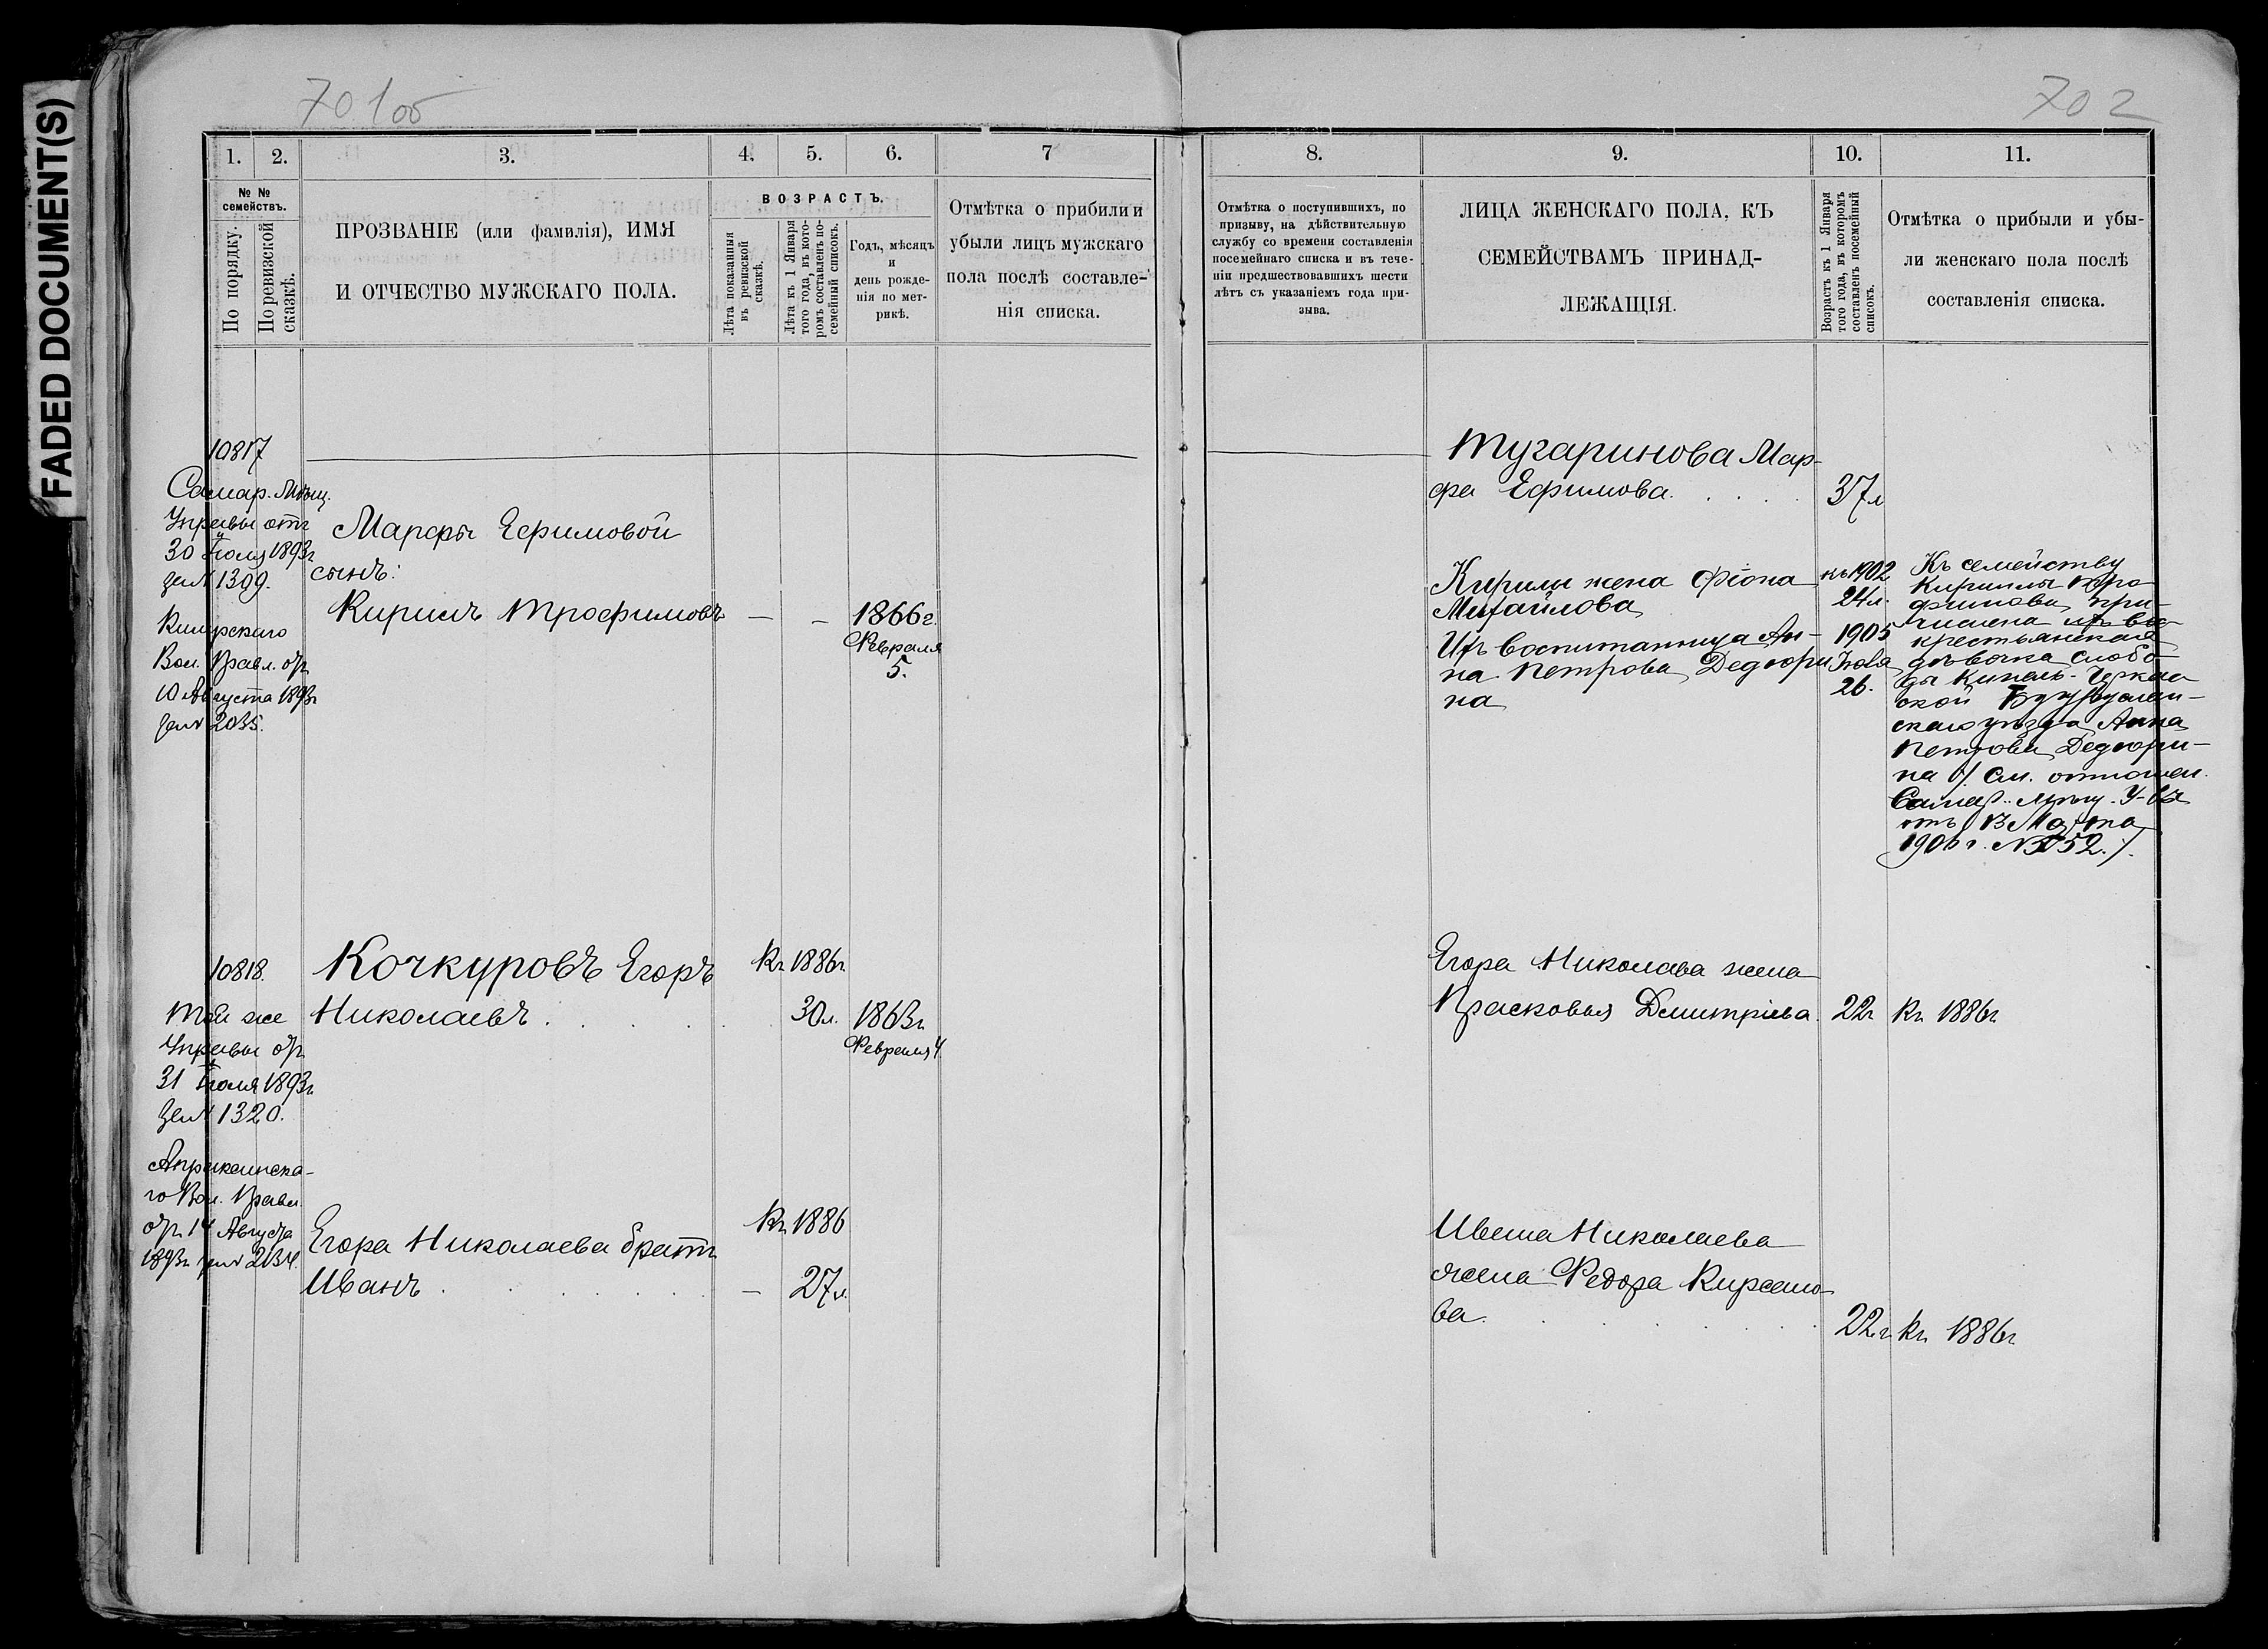 FADED DOCUMENT(S)
701об
702
1. 2. 3. 4. 5. 6. 7
№ №
семействъ.
По порядку.
По ревизской
сказкѣ.
ПРОЗВАНІЕ (или фамилія), ИМЯ
И ОТЧЕСТВО МУЖСКАГО ПОЛА.
ВОЗРАСТЪ.
Лѣта показанныя
въ ревизской
сказкѣ.
Лѣта къ 1 Января
того года, въ кото-
ромъ составленъ по-
семейный списокъ.
Годъ, мѣсяцъ
и
день рожде-
нія по мет-
рикѣ.
Отмѣтка о прибыли и
убыли лицъ мужскаго
пола послѣ составле-
нія списка.
10817
Самар. Мѣщ.
Управы отъ
30 Іюля 1893г
за № 1309.
Вол. Правл. отъ
10 Августа 1893г
за № 2035.
Марфы Ефимовой
сынъ:
Кирилъ Трофимовъ — — 1866г.
Февраля
5.
10818.
Той же
Управы отъ
31 Іюля 1893г
за № 1320.
Апраксинска-
го Вол. Правл.
отъ 14 Августа
1893г за № 2134.
Кочкуровъ Егоръ Къ 1886г
Николаевъ . . . . 30л. 1863г
Февраля 4
Егора Николаева братъ Къ 1886
Иванъ . . . . . . — 27л.
8. 9. 10. 11.
Отмѣтка о поступившихъ, по
призыву, на дѣйствительную
службу со времени составленія
посемейнаго списка и въ тече-
ніи предшествовавшихъ шести
лѣтъ съ указаніемъ года при-
зыва.
ЛИЦА ЖЕНСКАГО ПОЛА, КЪ
СЕМЕЙСТВАМЪ ПРИНАД-
ЛЕЖАЩІЯ.
Возрастъ къ 1 Января
того года, въ которомъ
составленъ посемейный
списокъ.
Отмѣтка о прибыли и убы-
ли женскаго пола послѣ
составленія списка.
Тугаринова Мар-
фа Ефимова. . . . 37л
Кирилы жена Фіона къ 1902
Михайлова 24л.
Ихъ воспитанница Ан- 1905
на Петрова Дедюри
на 26.
Къ семейству
Кириллы Тро
фимова при-
числена
крестьянская
дѣвочка слобо-
ды Кинель-Черкас
ской Бугуруслан-
скаго уѣзда Анна
Петрова Дедюри-
на /См. отношен.
Самар. Мѣщ. У-вы
отъ 13 Марта
1906 г. № 5752./.
Егора Николаева жена
Прасковья Дмитріева. 22г Къ 1886г
Ивана Николаева
жена Федора Кирсано-
ва. . . . . . 22г Къ 1886г